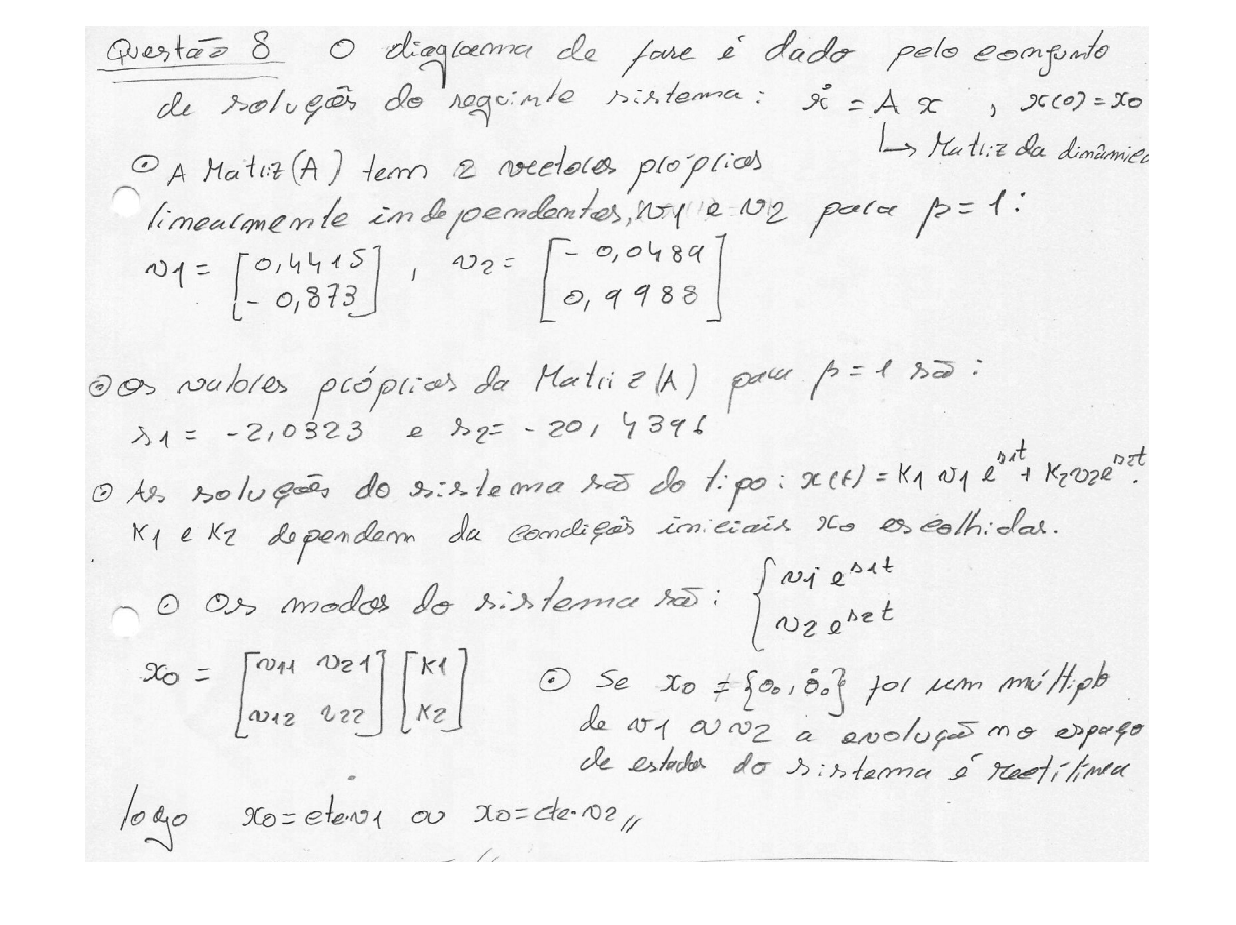 Questão 8 O diagrama de fase é dado pelo conjunto
de soluções do seguinte sistema: ẋ = A x , x(0) = x0
↳ Matriz da dinâmica
⊙ A Matriz(A) tem 2 vectores próprios
linearmente independentes, v1 e v2 para β = 1:
v1 = [0,4415 - 0,873] , v2 = [- 0,0489 0,9988]
⊙ Os valores próprios da Matriz(A) para β = 1 são:
s1 = -2,0323 e s2 = - 20,4396
⊙ As soluções do sistema são do tipo: x(t) = K1 v1 e^s1t + K2 v2 e^s2t.
K1 e K2 dependem da condições iniciais x0 escolhidas.
⊙ Os modos do sistema são: { v1 e^s1t v2 e^s2t
x0 = [v11 v21 v12 v22] [K1 K2]
⊙ Se x0 ≠ {θ0, θ̇0} for um múltiplo
de v1 ou v2 a evolução no espaço
de estados do sistema é rectilínea
logo x0 = cte.v1 ou x0 = cte.v2 //